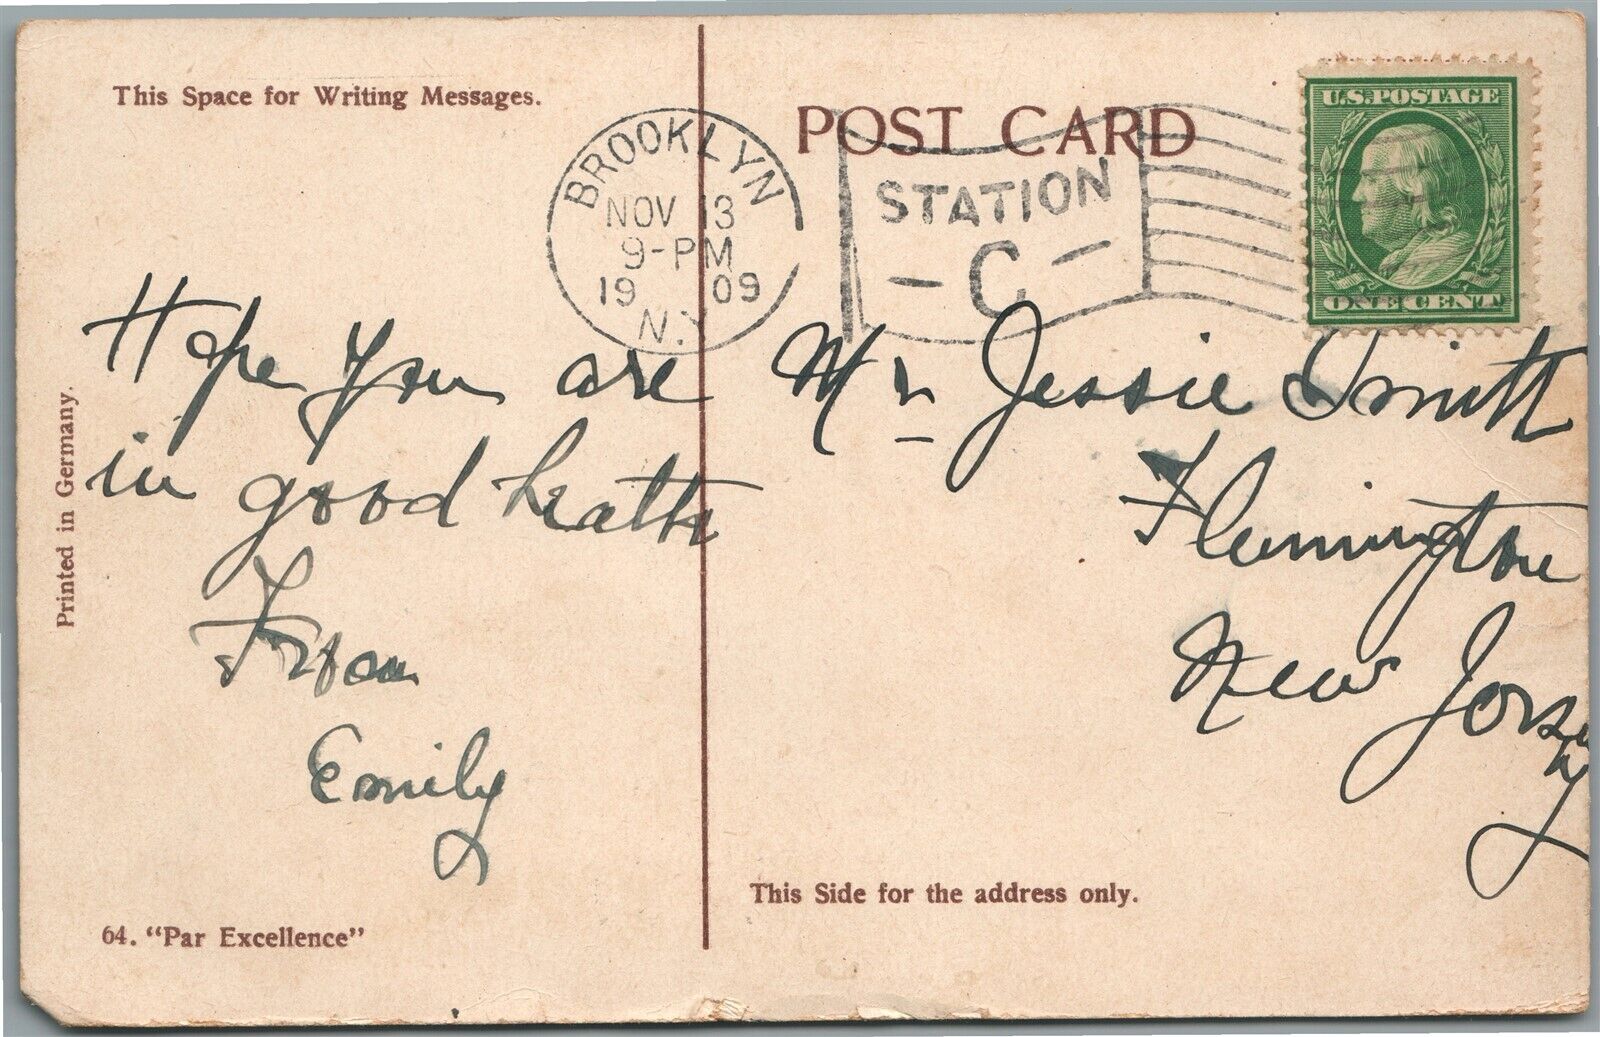 This Space for Writing Messages.
POST CARD
U.S. POSTAGE
ONE CENT
BROOKLYN
NOV 13
9-PM
19 09
N.Y.
STATION
- C -
Hope you are
in good health
From
Emily
Mr Jessie Smith
Flemington
New Jersey
Printed in Germany.
This Side for the address only.
64. "Par Excellence"